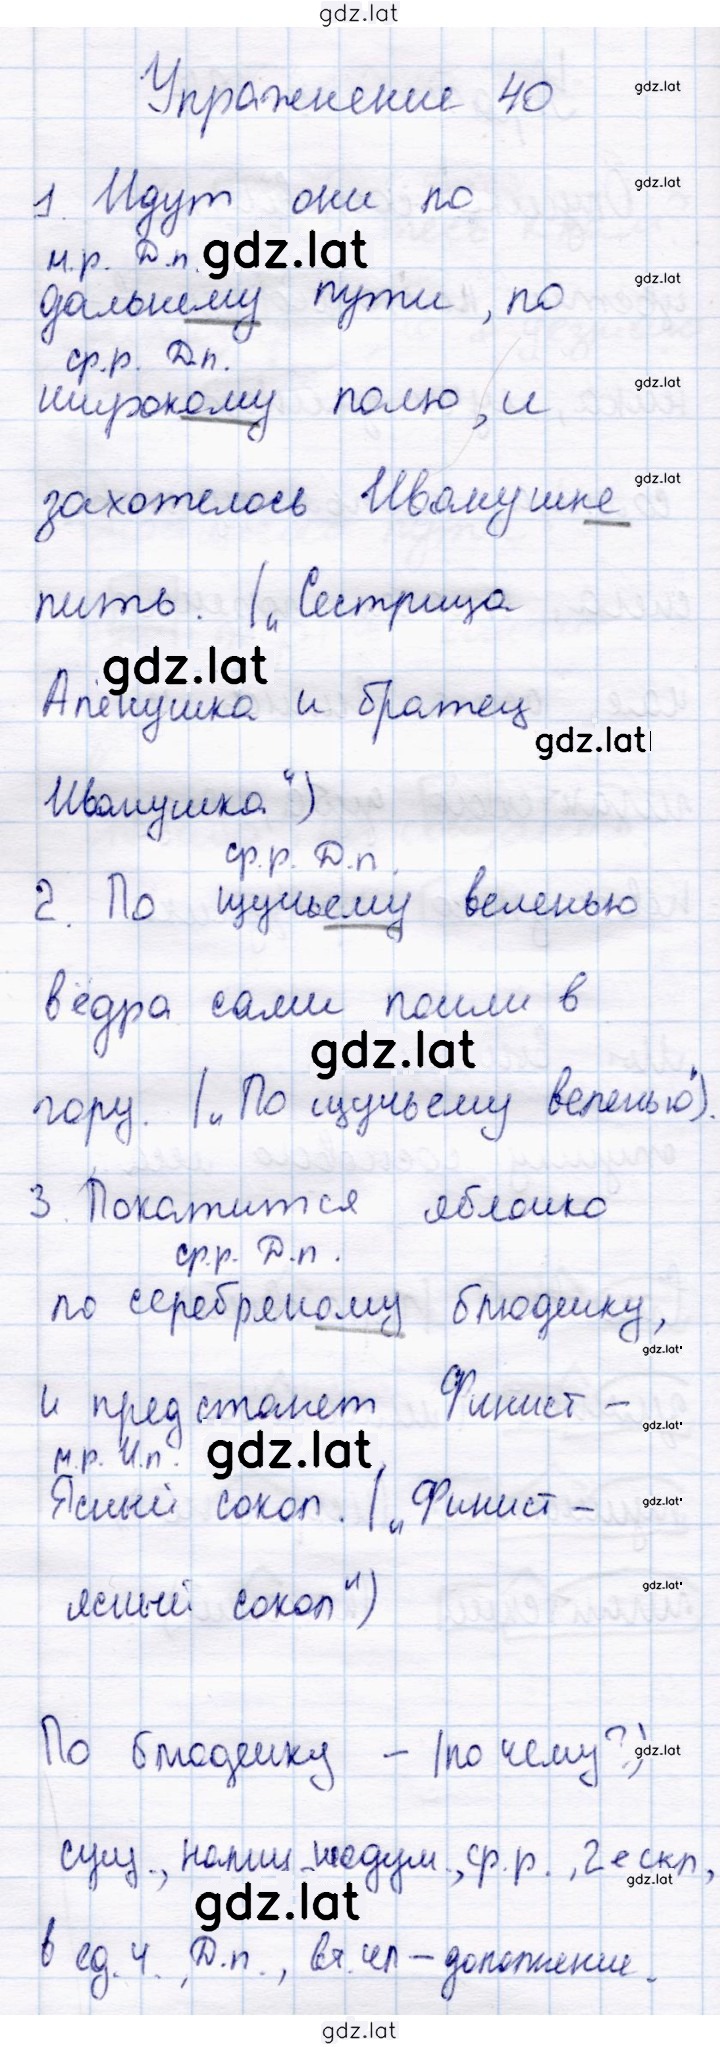 gdz.lat
Упражнение 40
gdz.lat
1. Идут они по
gdz.lat
м.р. Д.п.
gdz.lat
дальнему пути, по
gdz.lat
ср.р. Д.п.
широкому полю, и
gdz.lat
захотелось Иванушке
gdz.lat
пить. („Сестрица
gdz.lat
Алёнушка и братец
gdz.lat
Иванушка“)
ср.р. Д.п.
2. По щучьему веленью
вёдра сами пошли в
gdz.lat
гору. („По щучьему веленью“).
3. Покатится яблочко
ср.р. Д.п.
по серебряному блюдечку,
gdz.lat
и предстанет Финист –
gdz.lat
м.р. И.п.
gdz.lat
Ясный сокол. („Финист –
gdz.lat
ясный сокол“)
gdz.lat
По блюдечку – (по чему?)
gdz.lat
сущ., нариц., неодуш., ср.р., 2е скл,
gdz.lat
gdz.lat
в ед.ч., Д.п., вт.чл – дополнение.
gdz.lat